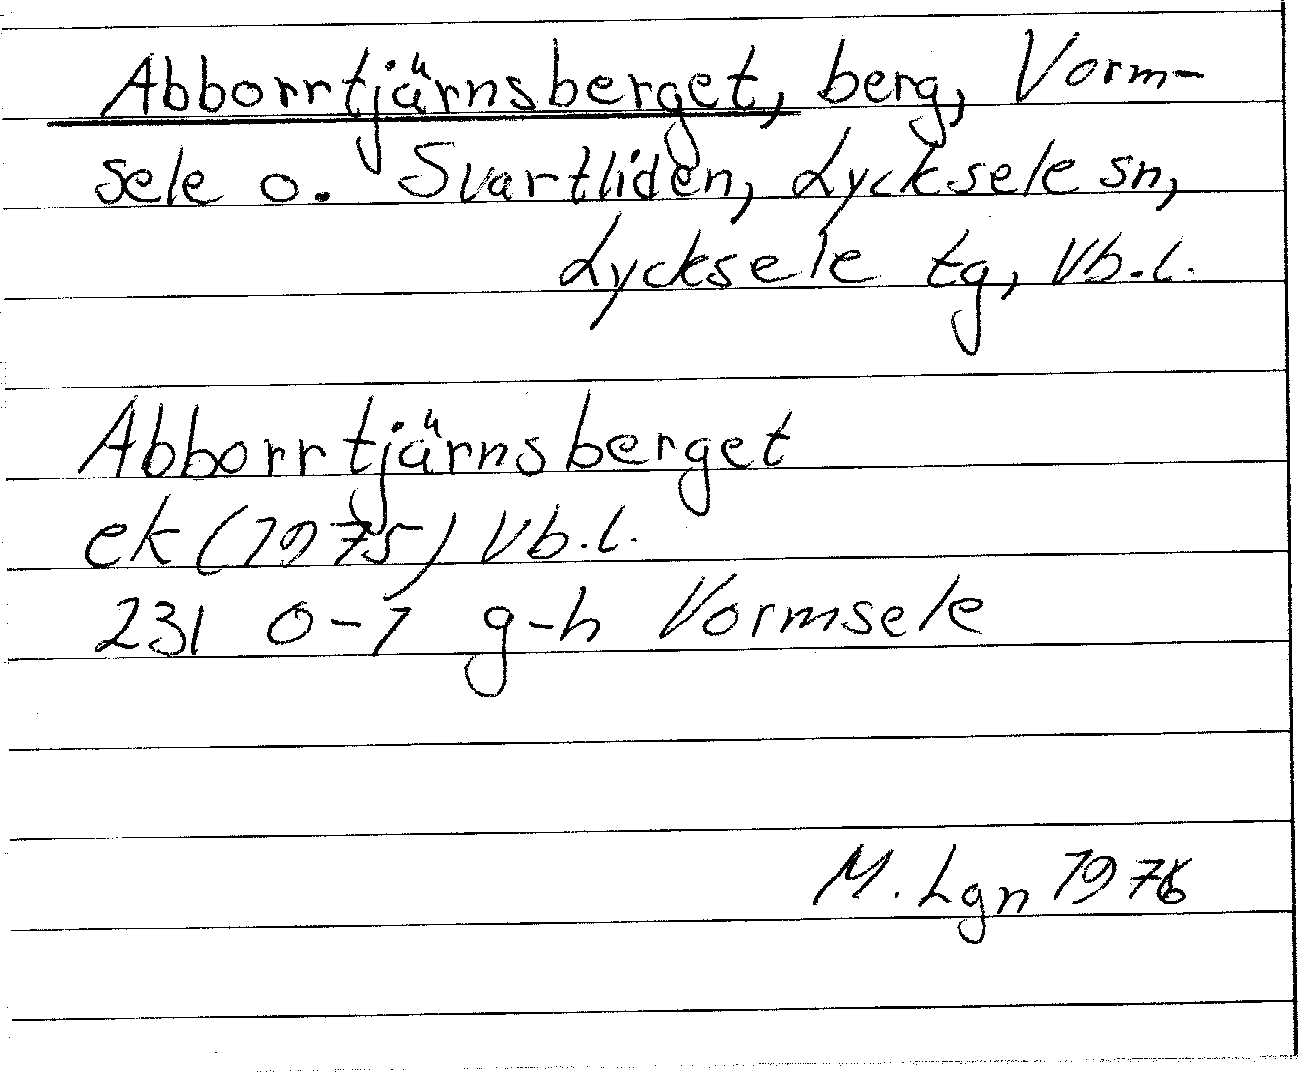 Abborrtjärnsberget, berg, Vorm-
sele o. Svartliden, Lycksele sn,
Lycksele tg, Vb.l.
Abborrtjärnsberget
ek (1975) Vb.l.
231 0-1 g-h Vormsele
M. Lgn 1976